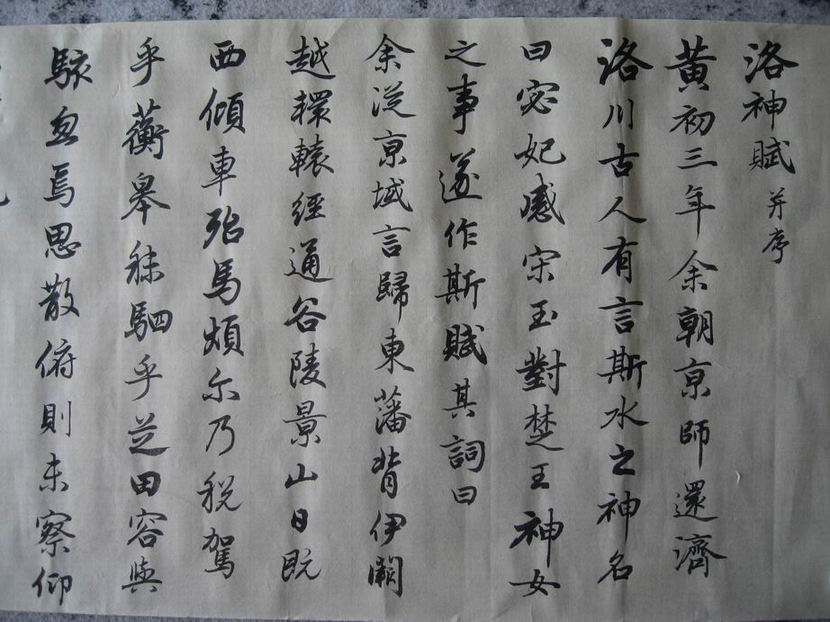 洛神賦 并序
黃初三年余朝京師還濟
洛川古人有言斯水之神名
曰宓妃感宋玉對楚王神女
之事遂作斯賦其詞曰
余從京域言歸東藩背伊闕
越轘轅經通谷陵景山日既
西傾車殆馬煩尓乃税駕
乎蘅皋秣駟乎芝田容與
駭忽焉思散俯則未察仰